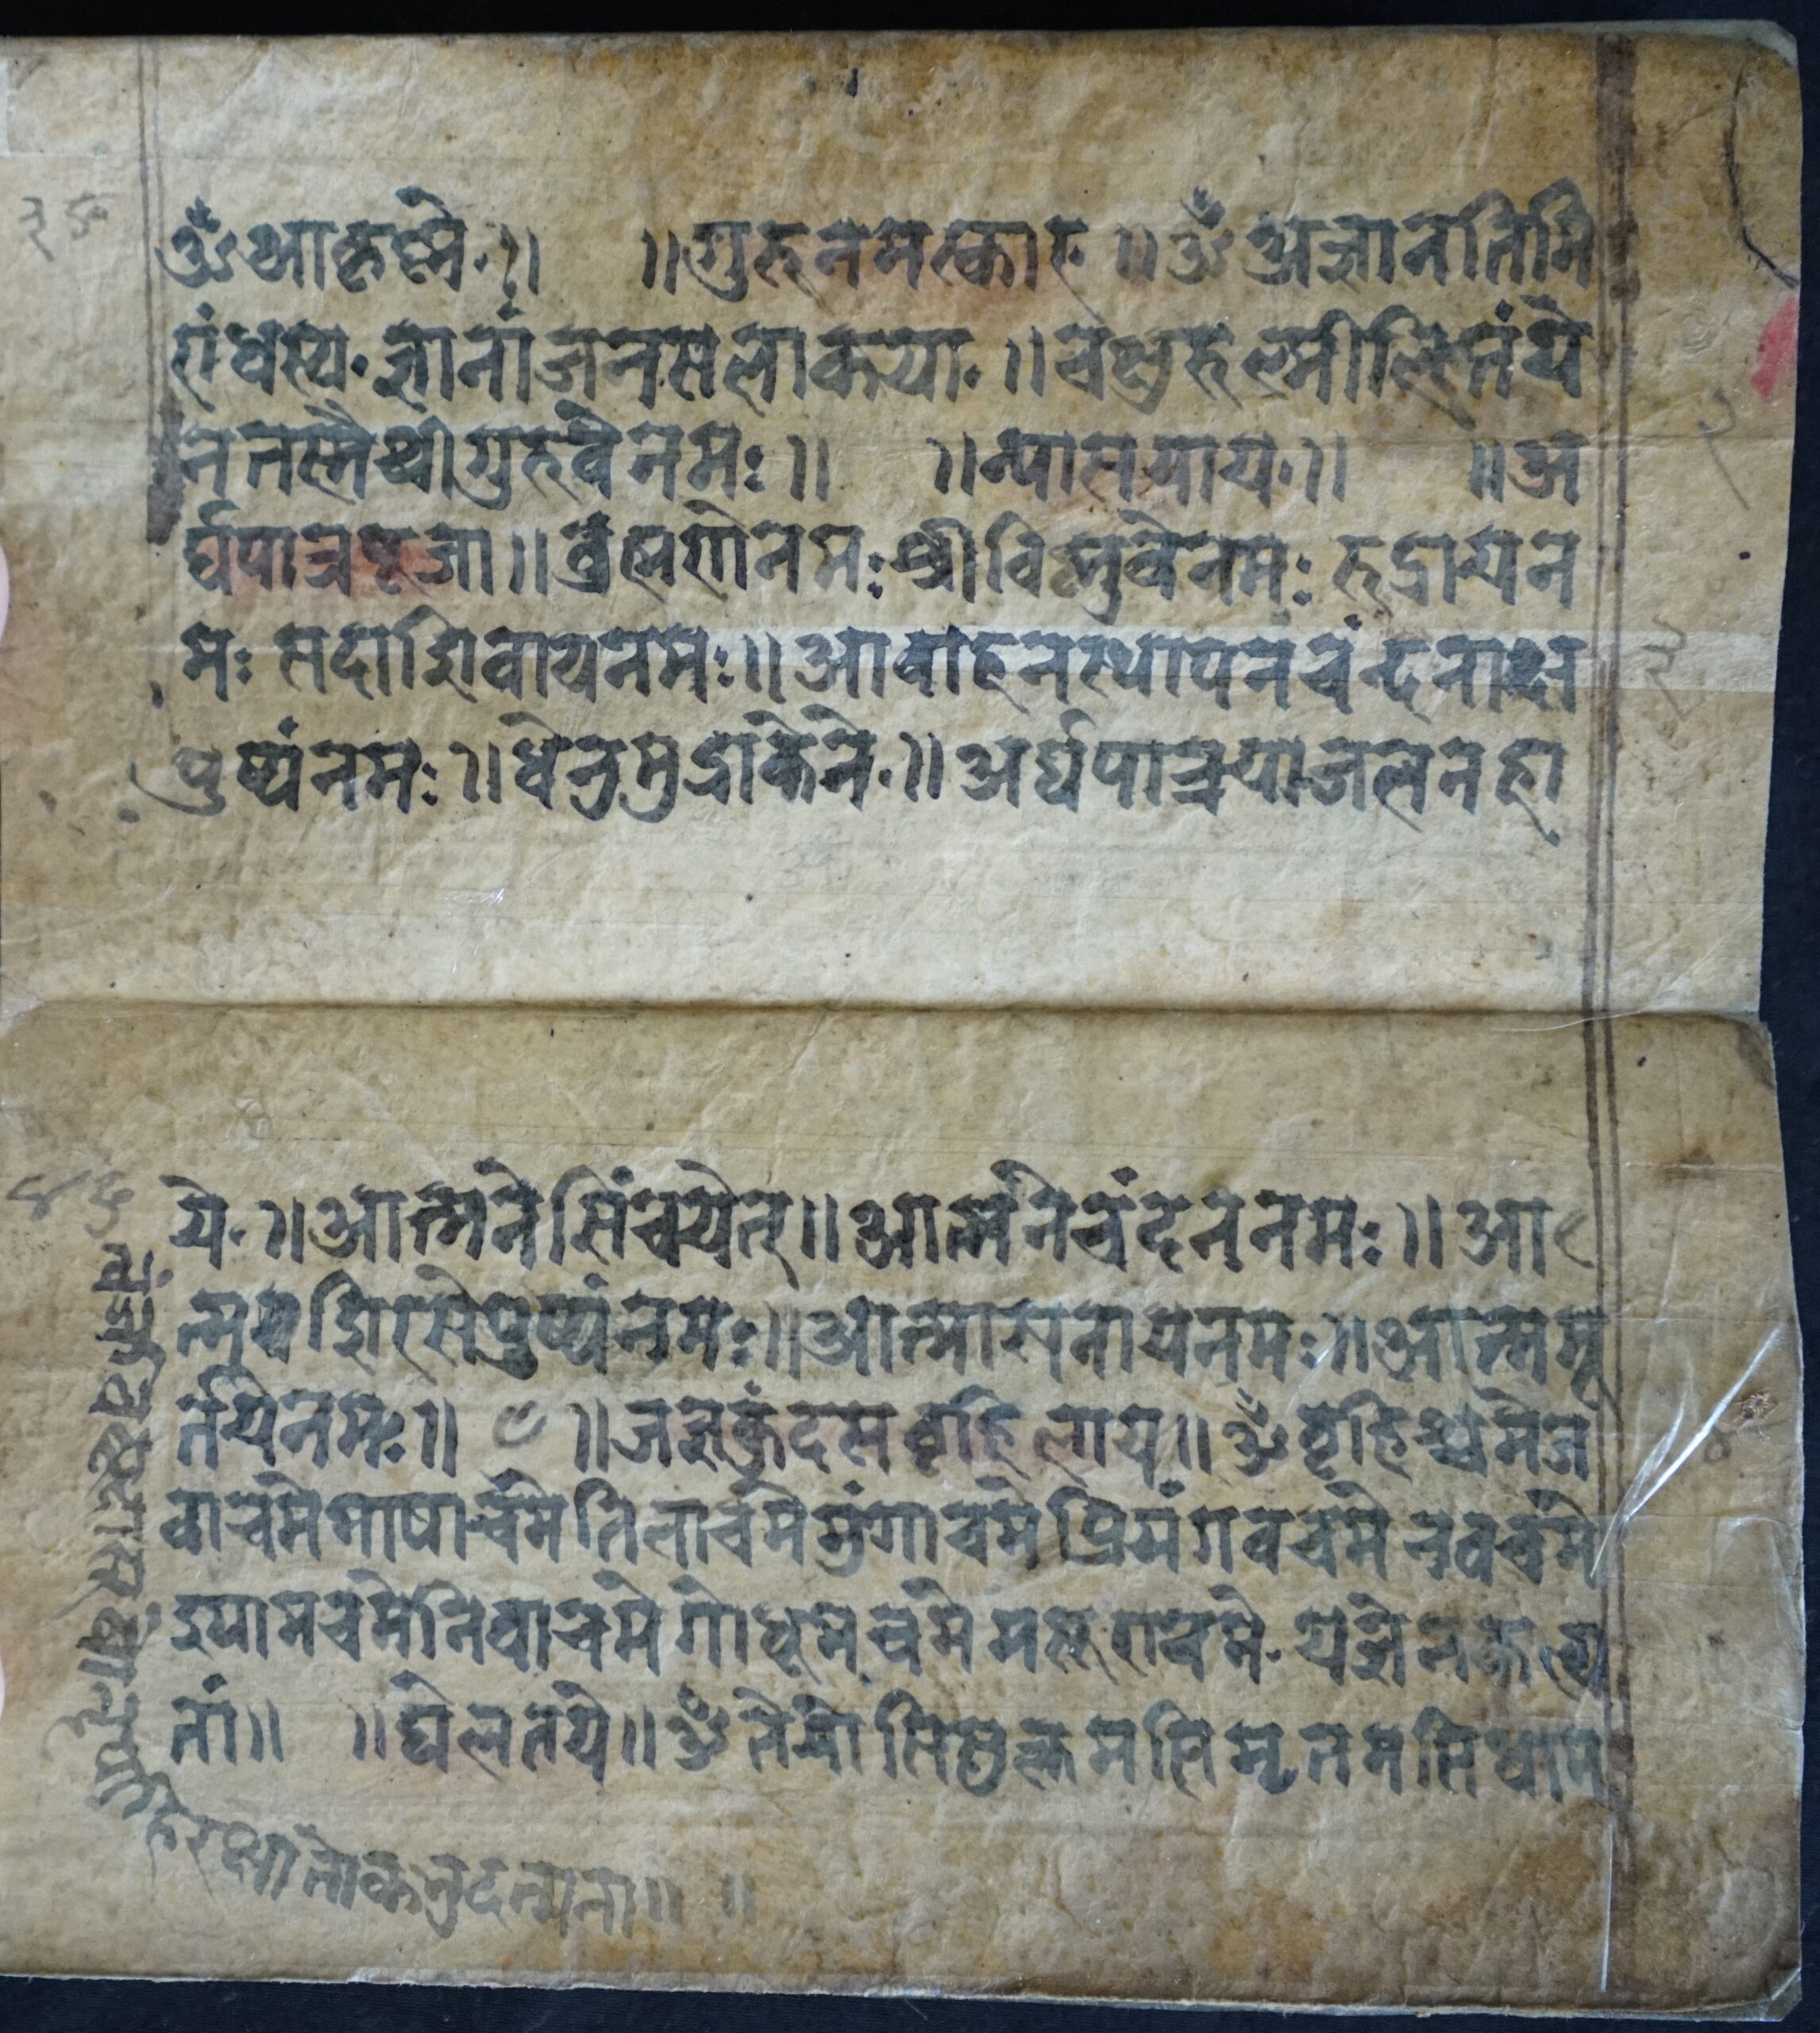 ॐ आकृष्णे.॥ ॥गुरुनमस्कार॥ॐ अज्ञानतिमि
रांधस्य. ज्ञानांजनसलाकया.॥चक्षुरुल्मीलितंये
नतस्मैश्रीगुरुवेनमः॥ ॥न्यासयाय.॥ ॥अ
र्घपात्रपूजा॥ब्रंह्मणेनमः श्रीविष्णुवेनमः रुद्रायन
मः सदाशिवायनमः॥आवाहनस्थापनंचंन्दनाक्ष
पुष्पंनमः॥धेनुमुद्राकेने.॥अर्घपात्रयाजलनहा
ये.॥आत्मनेसिंचयेत्॥आत्मनेचंदनंनमः॥आ
त्मशिरसेपुष्पंनमः॥आत्मासनायनमः॥आत्ममू
र्तयेनमः॥ ॥जज्ञकुंदसवृहिलाय॥ॐवृहिश्चमेज
वाचमेमाषाचमेतिलाचमेमुंगाचमेप्रियंगवचमेनवचमे
श्यामचमेनिवाचमेगोधूमचमेमसूराचमे.यज्ञेनकल्प
तां॥ ॥घेलतये॥ॐतेजोसिशुक्रमसिमृतमसिधाम
रक्षातोकमुदत्मना॥ ॥